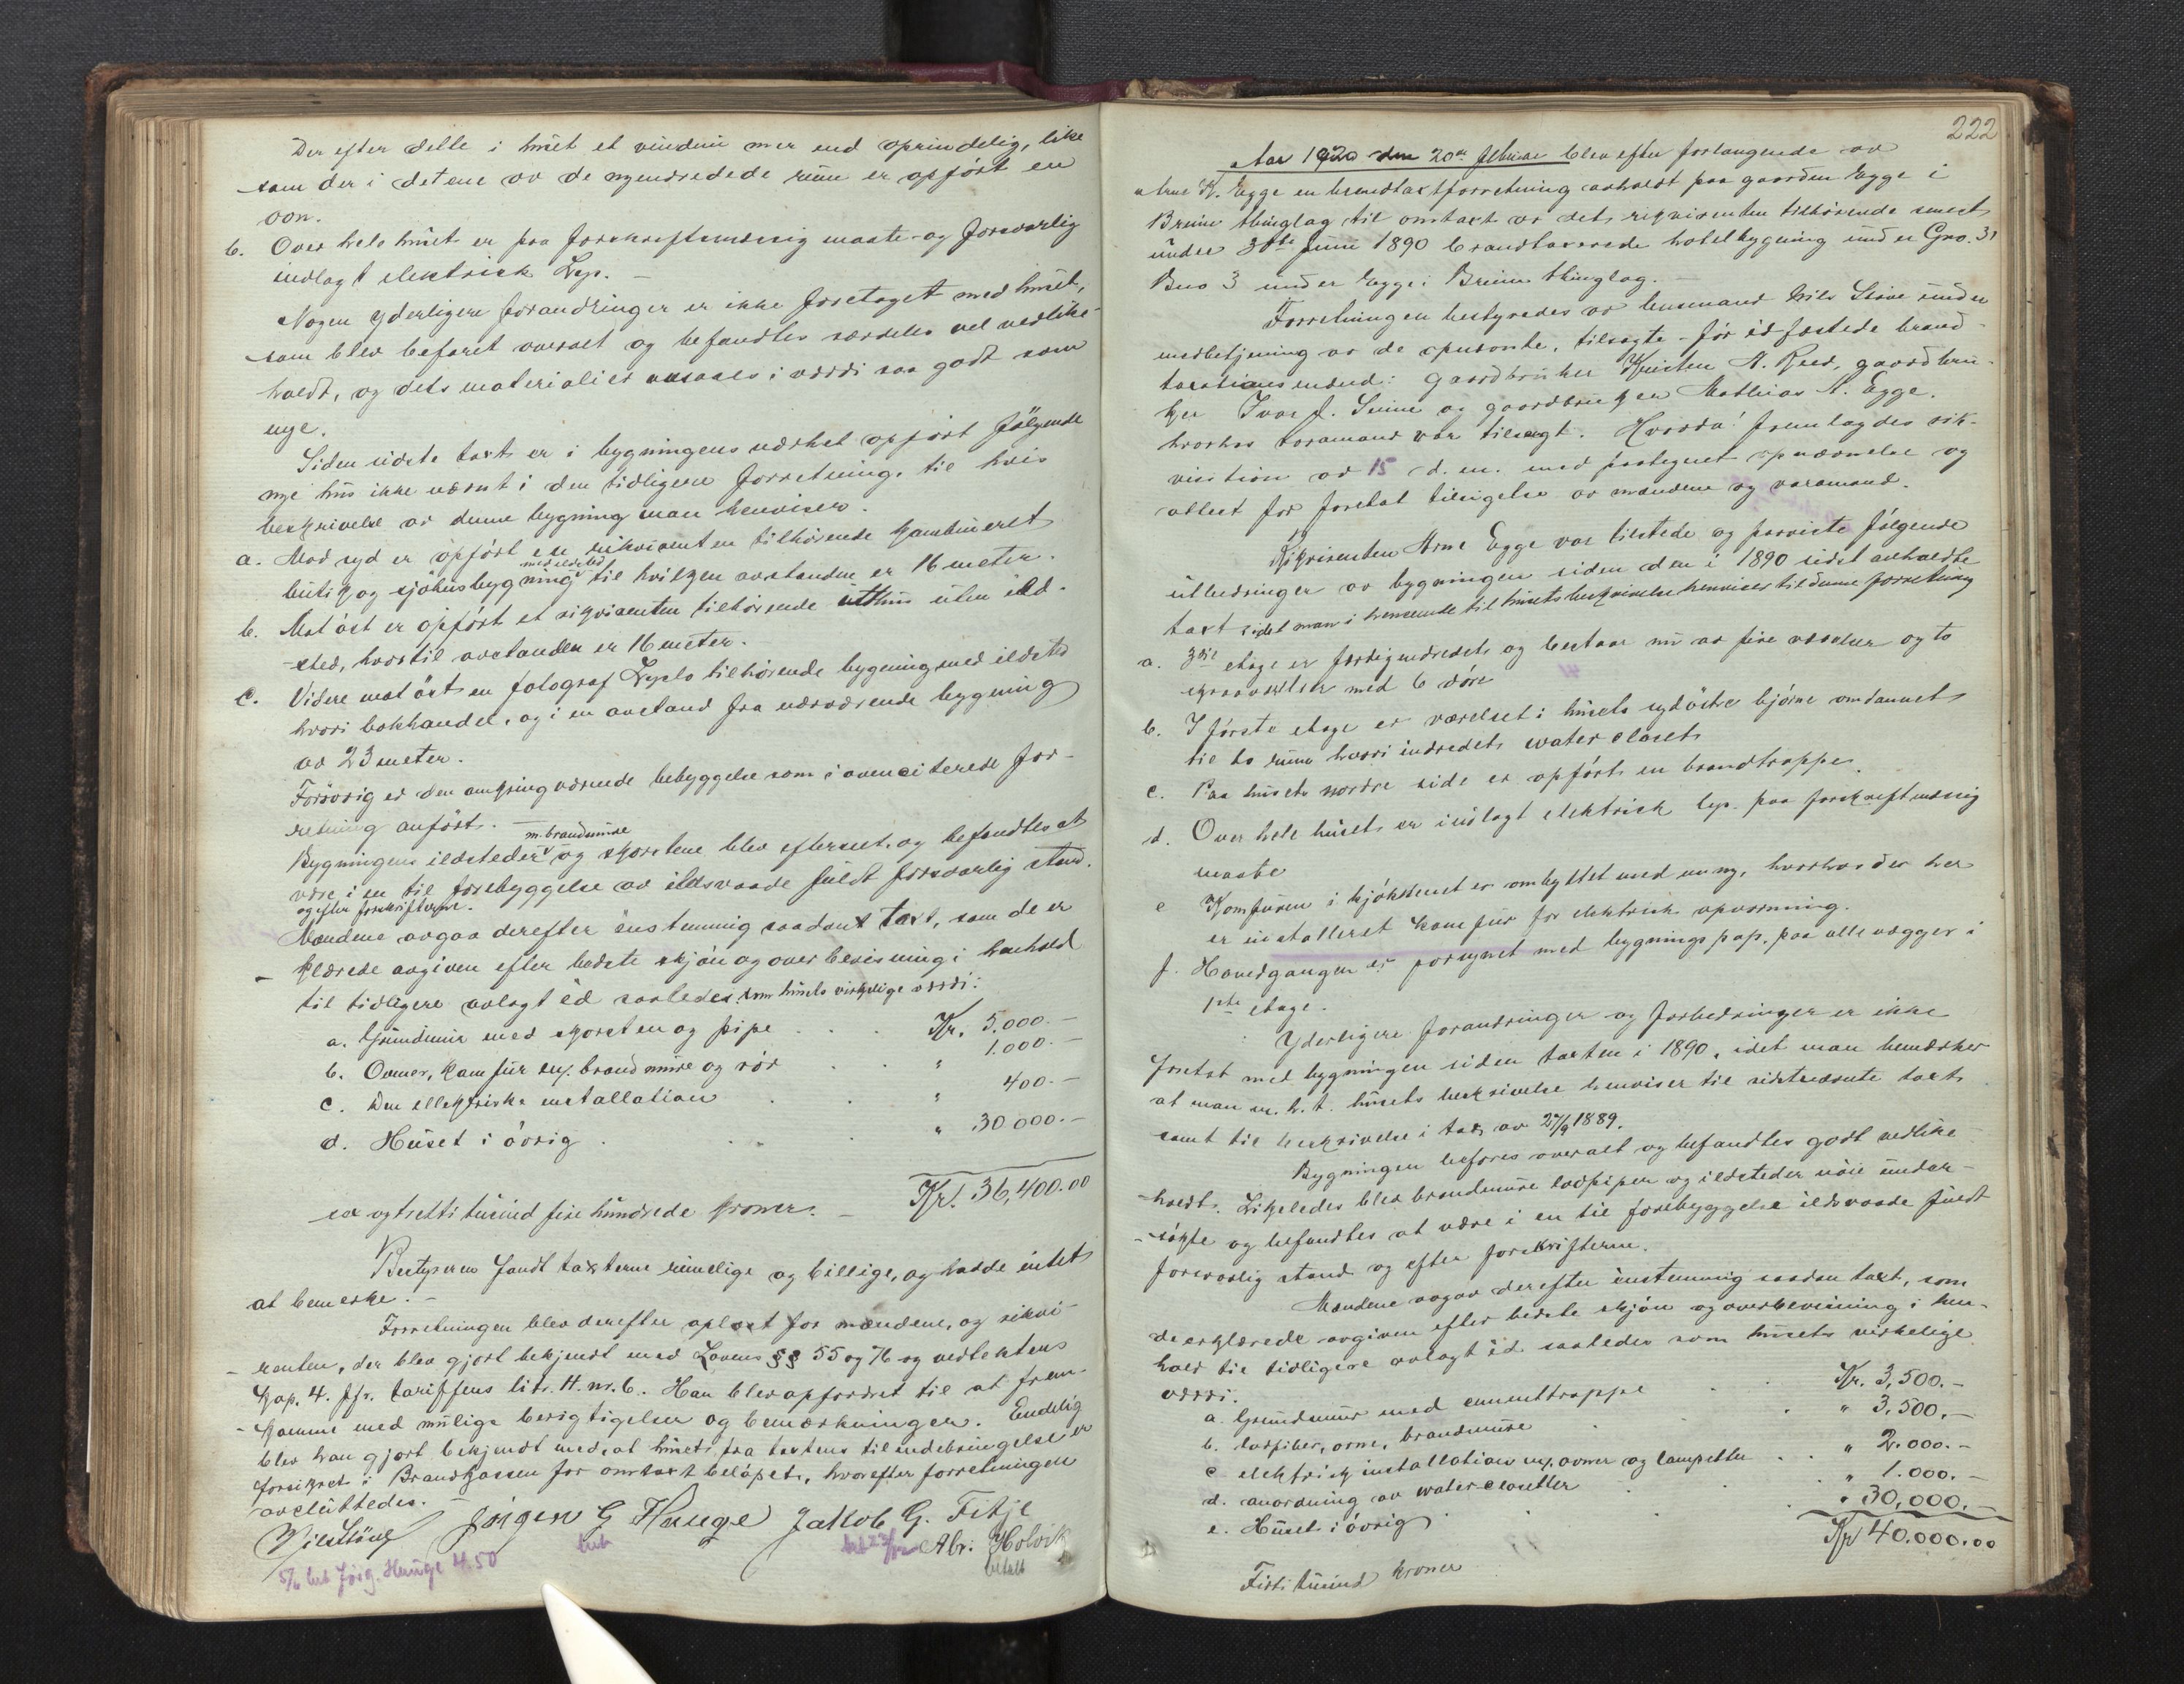 Der efter dette i huset et vindu mer end oprindelig, like
som der i detene av de nyendredede rum er opført en
ovn.
b. Over hele huset er paa forskriftsmæssig maate og forsvarlig
indlagt elektrisk Lys. —
Nogen yderligere forandringer er ikke foretaget med huset,
som blev befaret overalt og befandtes særdeles vel vedlike-
holdt, og dets materialier ansaaes i værdi saa godt som
nye.
Siden sidste takst er i bygningens nærhet opført følgende
nye hus ikke nævnt i den tidligere forretning, til hvis
beskrivelse av denne bygning man henviser.
a. Mod syd er opført en rikvirenten tilhørende kombineret
butik og sjøhusbygning med ildsted til hvilken avstanden er 16 meter.
b. Mot øst er opført et rikvirenten tilhørende uthus uten ild-
sted, hvortil avstanden er 16 meter.
c. Videre mot øst en fotograf tilhørende bygning med ildsted
hvori bokhandel, og i en avstand fra nærværende bygning
av 23 meter.
Forøvrig er den omkringværende bebyggelse som i ovenciterede for-
retning anført. —
Bygningens ildsteder m. brandmure og skorstene blev efterseet og befandtes at
være i en til forebyggelse av ildsvaade fuldt forsvarlig stand.
og efter forskrifterne.
Mændene avgav derefter enstemmig saadant takst, som de er-
klærede avgiven efter bedste skjøn og overbevisning i henhold
til tidligere avlagt ed saaledes som husets virkelige værdi:
a. Grundmur med skorsten og pipe . . . Kr. 5.000.—
b. Ovner, komfur brandmure og rør . . " 1.000.—
c. Den ellektriske installation . . " 400.—
d. Huset i øvrig . . . " 30.000.—
Kr. 36,400.00
sex og tretti tusind fire hundrede kroner. —
Bestyreren fandt taksterne rimelige og billige, og hadde intet
at bemerke. —
Forretningen blev derefter oplæst for mændene, og rikvi-
renten, der blev gjort bekjendt med Lovens §§ 55 og 76 og vedtektens
Kap. 4. Jfr. tariffens litr. H. nr. 6. Han blev opfordret til at frem-
komme med mulige berigtigelser og bemærkninger. Endelig
blev han gjort bekjendt med, at huset fra takstens tilendebringelse er
forsikret i Brandkassen for omtakst beløpet, hvorefter forretningen
avsluttedes. —
Jørgen G Hauge Jakob G. Fitje
Abr. Holvik
5/6 bet Jørg. Hauge 4.50 bet betalt
222
Aar 1920 den 20de februar blev efter forlangende av
Arne K. Egge en brandtakstforretning avholdt paa gaarden Egge i
Breim thinglag til omtakst av det rikvirenten tilhørende senest
under juni 1890 brandtakserede hotelbygning under Gno. 31
Bno 3 under Egge i Breim thinglag. —
Forretningen bestyredes av lensmand Nils Støve under
medbetjening av de opnævnte, tilsagte før edfæstede brand-
taxationsmænd: Gaardbruker Kristen A. Reed, gaardbru-
ker Ivar J. Seime og gaardbruker Mathias A. Egge.
hvorhos varamand var tilsagt. Hvorda fremlagdes rik-
visition av 15 d. m. med paategnet opnævnelse og
attest for foretat tilsigelse av mændene og varamand.
Rikvirenten Arne Egge var tilstede og paaviste følgende
utbedringer av bygningen siden den i 1890 sidst avholdte
takst idet man i henseende til husets beskrivelse henviser til denne forretning
a. 3die etage er færdigindredet og bestaar nu av fire værelser og to
med 6 døre
b. I første etage er værelset i husets sydøstre hjørne omdannet
til to rum hvori indredet water closet
c. Paa husets nordre side er opført en brandtrappe.
d. Over hele huset er indlagt elektrisk lys paa forskriftmæssig
maate
e Komfuren i kjøkkenet er ombyttet med en ny, hvorhos der her
er installeret komfur for elektrisk opvarmning.
f. Hovedgangen er forsynet med bygningspap. paa alle vægger i
1ste etage.
Yderligere forandringer og forbedringer er ikke
foretat med bygningen siden taksten i 1890, idet man bemærker
at man m. h. t. husets beskrivelse henviser til sidstnævnte takst
samt til beskrivelse i takst av 27/9 1889.
Bygningen befores overalt og befandtes godt vedlike-
holdt. Likeledes blev brandmure lodpiper og ildsteder nøie under-
søkte og befandtes at være i en til forebyggelse ildsvaade fuldt
forsvarlig stand og efter forskrifterne.
Mændene avgav derefter enstemmig saadan takst, som
de erklærede avgiven efter bedste skjøn og overbevisning i hen-
hold til tidligere avlagt ed saaledes som husets virkelige
værdi.
a. Grundmur med cementtrappe . . Kr. 3,500.—
b. lodpiber, ovne, brandmure . . " 3.500.—
c elektrisk installation ovner og lampetter . . " 2.000.—
d. anordning av water closetter . . " 1.000.—
e. Huset i øvrig . . " 30,000.—
Kr 40.000.00
Firti tusind kroner